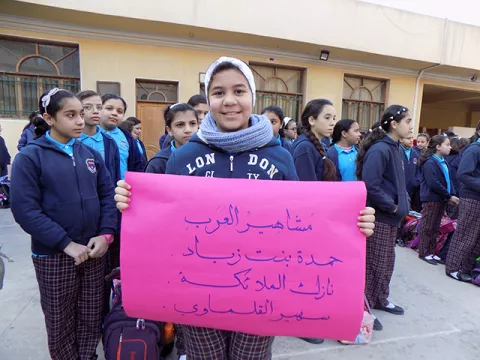 LONDON
مشاهير العرب
حمدة بنت زياد .
نازك الملائكة .
سهير القلماوي .